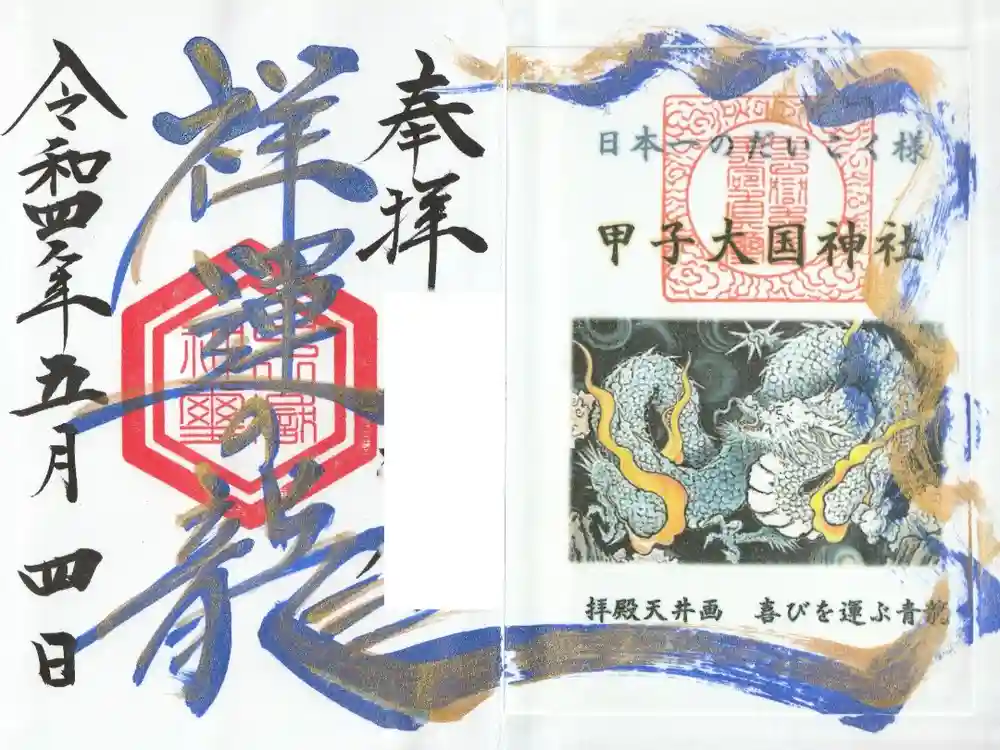 日本一のだいこく様
甲子大国神社
拝殿天井画　喜びを運ぶ青龍
奉拝
祥運龍
令和四年五月四日